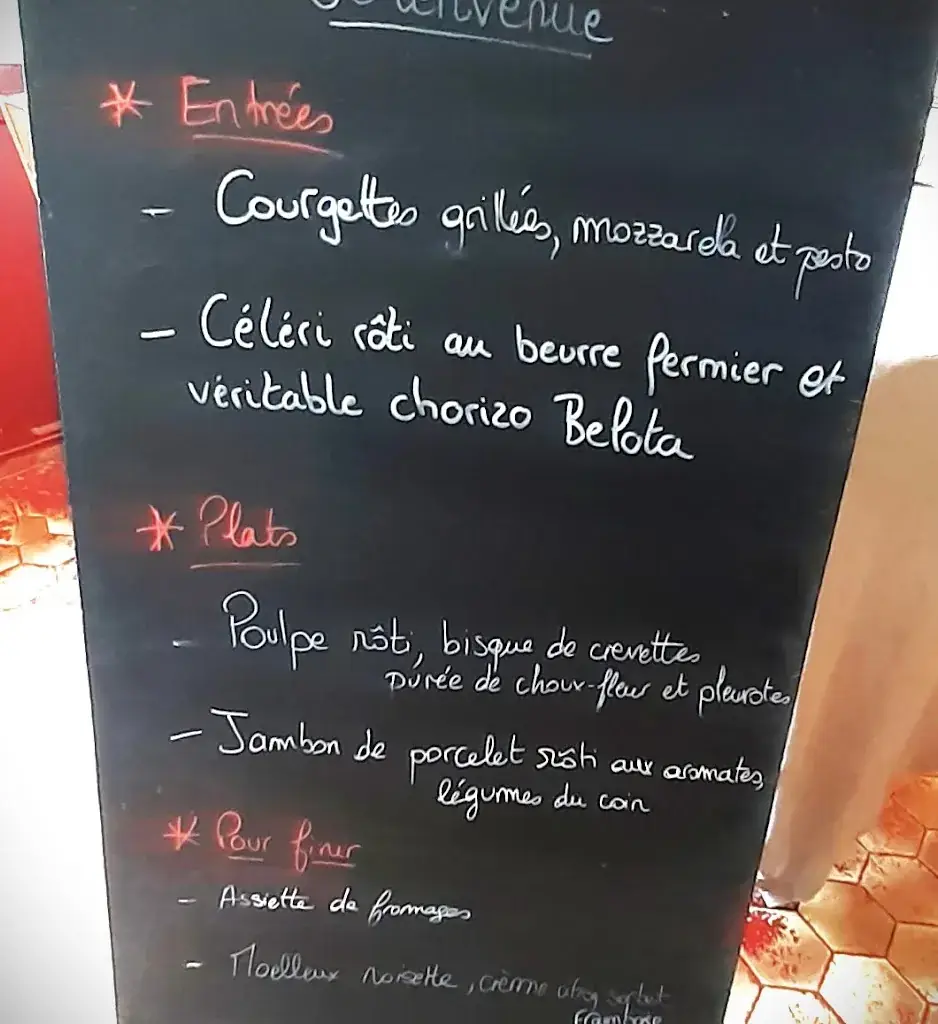 Bienvenue
* Entrées
- Courgettes grillées, mozzarella et pesto
- Céléri rôti au beurre fermier et
véritable chorizo Bellota
* Plats
- Poulpe rôti, bisque de crevettes
purée de choux-fleur et pleurotes
- Jambon de porcelet rôti aux aromates,
légumes du coin
* Pour finir
- Assiette de fromages
- Moelleux noisette, crème sorbet
framboise